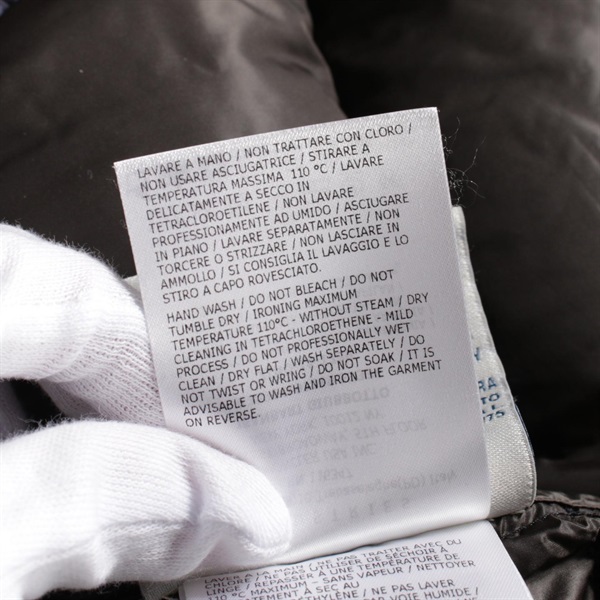 LAVARE A MANO / NON TRATTARE CON CLORO /
NON USARE ASCIUGATRICE / STIRARE A
TEMPERATURA MASSIMA 110 °C / LAVARE
DELICATAMENTE A SECCO IN
TETRACLOROETILENE / NON LAVARE
PROFESSIONALMENTE AD UMIDO / ASCIUGARE
IN PIANO / LAVARE SEPARATAMENTE / NON
TORCERE O STRIZZARE / NON LASCIARE IN
AMMOLLO / SI CONSIGLIA IL LAVAGGIO E LO
STIRO A CAPO ROVESCIATO.
HAND WASH / DO NOT BLEACH / DO NOT
TUMBLE DRY / IRONING MAXIMUM
TEMPERATURE 110°C - WITHOUT STEAM / DRY
CLEANING IN TETRACHLOROETHENE - MILD
PROCESS / DO NOT PROFESSIONALLY WET
CLEAN / DRY FLAT / WASH SEPARATELY / DO
NOT TWIST OR WRING / DO NOT SOAK / IT IS
ADVISABLE TO WASH AND IRON THE GARMENT
ON REVERSE.
LAVER À MAIN / NE PAS TRAITER AVEC DU
CHLORE / NE PAS UTILISER DE SÉCHOIR À
LINGE / REPASSER À UNE TEMPÉRATURE
MAXIMUM 110 °C - SANS VAPEUR / NETTOYER
À SEC AU
/ NE PAS LAVER
HUMIDE /